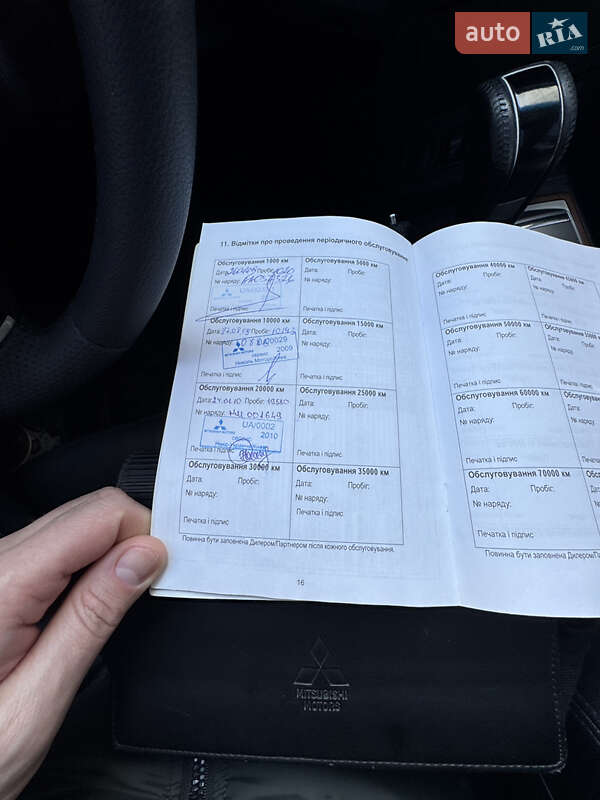 auto RIA.com
11. Відмітки про проведення періодичного обслуговування
Обслуговування 1000 км
Дата: Пробіг:
№ наряду:
Печатка і підпис
Обслуговування 5000 км
Дата: Пробіг:
№ наряду:
Печатка і підпис
Обслуговування 10000 км
Дата: Пробіг:
№ наряду:
2009
Печатка і підпис
Обслуговування 15000 км
Дата: Пробіг:
№ наряду:
Печатка і підпис
Обслуговування 20000 км
Дата: Пробіг: 19580
№ наряду:
UA/0002
2010
Печатка і підпис
Обслуговування 25000 км
Дата: Пробіг:
№ наряду:
Печатка і підпис
Обслуговування 30000 км
Дата: Пробіг:
№ наряду:
Печатка і підпис
Обслуговування 35000 км
Дата: Пробіг:
№ наряду:
Печатка і підпис
Повинна бути заповнена Дилером/Партнером після кожного обслуговування.
16
Обслуговування 40000 км
Дата: Пробіг:
№ наряду:
Печатка і підпис
Обслуговування 50000 км
Дата: Пробіг:
№ наряду:
Печатка і підпис
Обслуговування 60000 км
Дата: Пробіг:
№ наряду:
Печатка і підпис
Обслуговування 70000 км
Дата: Пробіг:
№ наряду:
Печатка і підпис
Повинна бути заповнена Дилером/
MITSUBISHI
MOTORS